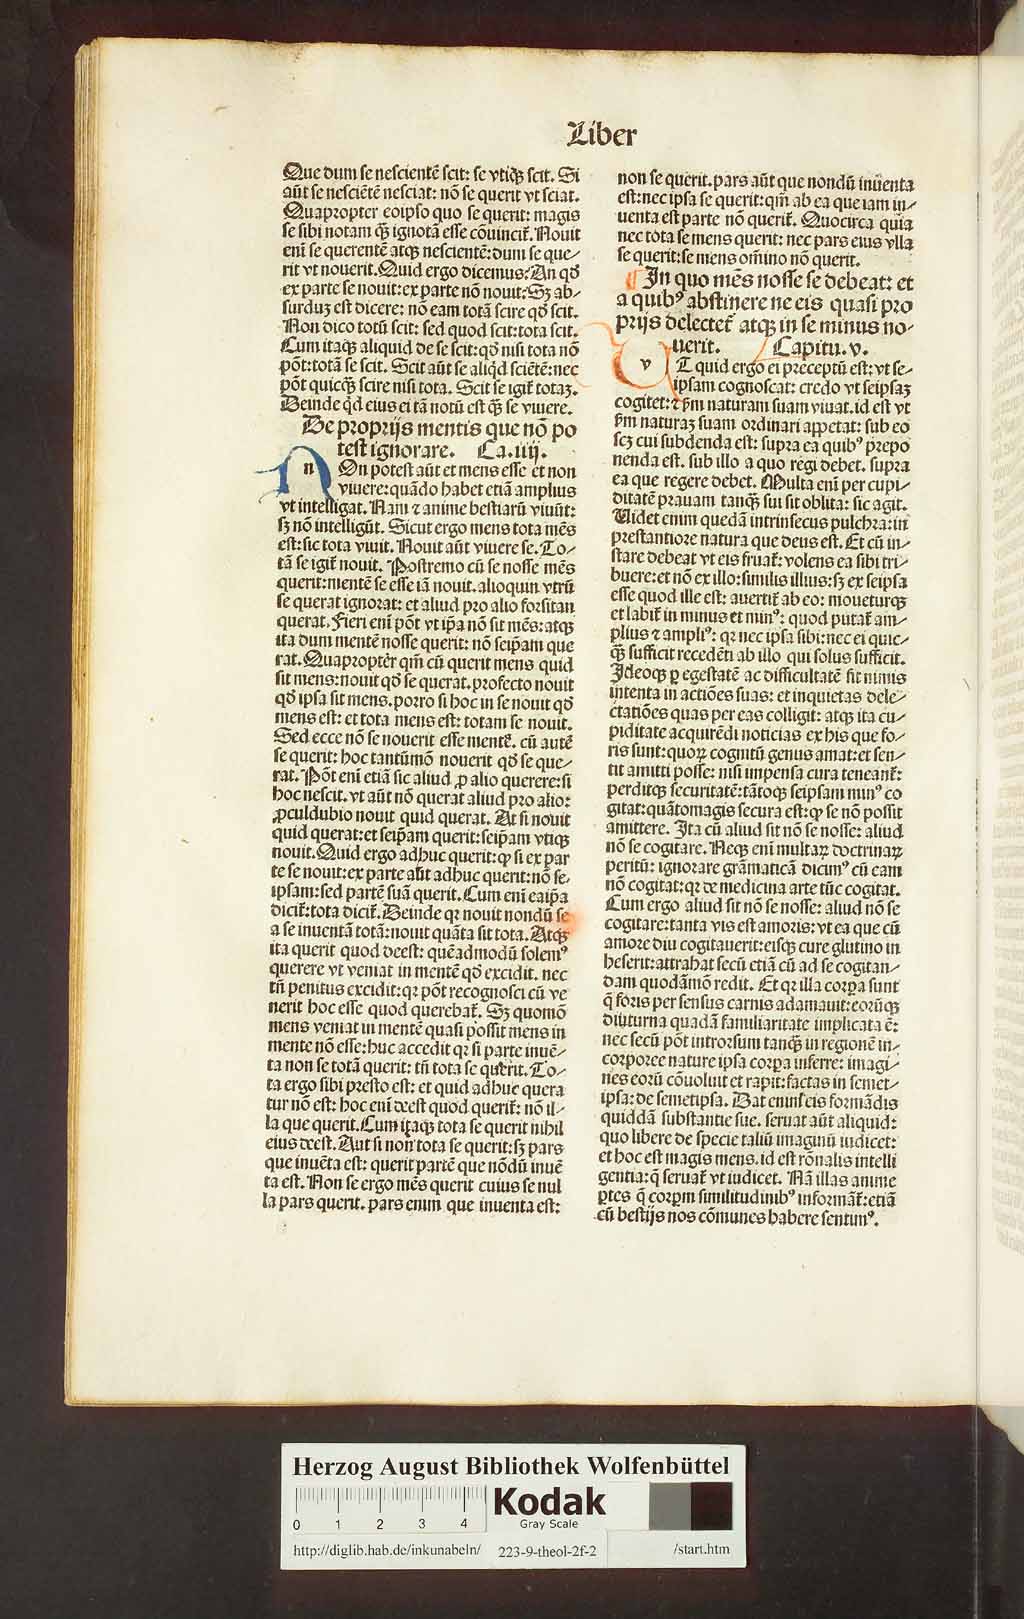 Liber
Que dum se nescientē scit: se vtiqꝫ scit. Si
aūt se nesciētē nesciat: nō se querit vt sciat.
Quapropter eoipso quo se querit: magis
se sibi notam qꝫ ignotā esse cōuincit̄. Nouit
enī se querentē atqꝫ nescientē: dum se que⸗
rit vt nouerit. Quid ergo dicemus: An qd̄
ex parte se nouit: ex parte nō nouit: Sꝫ ab⸗
surduꝫ est dicere: nō eam totā scire qd̄ scit.
Non dico totū scit: sed quod scit: tota scit.
Cum itaqꝫ aliquid de se scit: qd̄ nisi tota nō
pōt: totā se scit. Scit aūt se aliqd sciētē: nec
pōt quicqꝫ scire nisi tota. Scit se igit̄ totaꝫ.
Deinde qd̄ eius ei tā notū est qꝫ se viuere.
De proprijs mentis que nō po
test ignorare. Ca. iiij.
n On potest aūt et mens esse et non
viuere: quādo habet etiā amplius
vt intelligat. Nam ⁊ anime bestiarū viuūt:
sꝫ nō intelligūt. Sicut ergo mens tota mēs
est: sic tota viuit. Nouit aūt viuere se. To⸗
tā se igit̄ nouit. Postremo cū se nosse mēs
querit: mentē se esse iā nouit. alioquin vtrū
se querat ignorat: et aliud pro alio forsitan
querat. Fieri enī pōt vt ip̄a nō sit mēs: atqꝫ
ita dum mentē nosse querit: nō seip̄am que
rat. Quapropter qm̄ cū querit mens quid
sit mens: nouit qd̄ se querat. profecto nouit
qd̄ ipsa sit mens. porro si hoc in se nouit qd̄
mens est: et tota mens est: totam se nouit.
Sed ecce nō se nouerit esse mentē. cū autē
se querit: hoc tantūmō nouerit qd̄ se que⸗
rat. Pōt enī etiā sic aliud ꝓ alio querere: si
hoc nescit. vt aūt nō querat aliud pro alio:
ꝓculdubio nouit quid querat. At si nouit
quid querat: et seip̄am querit: seip̄am vtiqꝫ
nouit. Quid ergo adhuc querit: ꝙ si ex par
te se nouit: ex parte aūt adhuc querit: nō se⸗
ipsam: sed partē suā querit. Cum enī eaip̄a
dicit̄: tota dicit̄. Deinde qꝛ nouit nondū se
a se inuentā totā: nouit quāta sit tota. Atqꝫ
ita querit quod deest: quēadmodū solemꝰ
querere vt veniat in mentē qd̄ excidit. nec
tn̄ penitus excidit: qꝛ pōt recognosci cū ve
nerit hoc esse quod querebat̄. Sꝫ quomō
mens veniat in mentē quasi possit mens in
mente nō esse: huc accedit qꝛ si parte inuē⸗
ta non se totā querit: tn̄ tota se querit. To⸗
ta ergo sibi presto est: et quid adhuc quera
tur nō est: hoc enī deest quod querit̄: nō il⸗
la que querit. Cum itaqꝫ tota se querit nihil
eius deest. Aut si non tota se querit: sꝫ pars
que inuēta est: querit partē que nōdū inuē
ta est. Non se ergo mēs querit cuius se nul
la pars querit. pars enim que inuenta est:
non se querit. pars aūt que nondū inuēta
est: nec ipsa se querit: qm̄ ab ea que iam in⸗
uenta est parte nō querit̄. Quocirca quia
nec tota se mens querit: nec pars eius vlla
se querit: se mens om̄ino nō querit.
¶ In quo mēs nosse se debeat: et
a quibꝰ abstinere ne eis quasi pro
prijs delectet̄ atqꝫ in se minus no⸗
uerit. Capitu. v.
v T quid ergo ei preceptū est: vt se⸗
ipsam cognoscat: credo vt seipsaꝫ
cogitet: ⁊ ẜm naturam suam viuat. id est vt
ẜm naturaꝫ suam ordinari appetat: sub eo
scꝫ cui subdenda est: supra ea quibꝰ prepo
nenda est. sub illo a quo regi debet. supra
ea que regere debet. Multa enī per cupi⸗
ditatē prauam tanqꝫ sui sit oblita: sic agit.
Uidet enim quedā intrinsecus pulchra: in
prestantiore natura que deus est. Et cū in⸗
stare debeat vt eis fruat̄: volens ea sibi tri⸗
buere: et nō ex illo: similis illius: sꝫ ex seipsa
esse quod ille est: auertit̄ ab eo: moueturqꝫ
et labit̄ in minus et minꝰ: quod putat̄ am⸗
plius ⁊ ampliꝰ: qꝛ nec ipsa sibi: nec ei quic⸗
qꝫ sufficit recedēti ab illo qui solus sufficit.
Ideoqꝫ ꝑ egestatē ac difficultatē fit nimis
intenta in actiōes suas: et inquietas dele⸗
ctatiōes quas per eas colligit: atqꝫ ita cu⸗
piditate acquirēdi noticias ex his que fo⸗
ris sunt: quoꝝ cognitū genus amat: et sen⸗
tit amitti posse: nisi impensa cura teneant̄:
perditqꝫ securitatē: tātoqꝫ seipsam minꝰ co
gitat: quātomagis secura est: ꝙ se nō possit
amittere. Ita cū aliud sit nō se nosse: aliud
nō se cogitare. Neqꝫ enī multaꝝ doctrinaꝝ
peritū: ignorare grāmaticā dicimꝰ cū eam
nō cogitat: qꝛ de medicina arte tūc cogitat.
Cum ergo aliud sit nō se nosse: aliud nō se
cogitare: tanta vis est amoris: vt ea que cū
amore diu cogitauerit: eisqꝫ cure glutino in
heserit: attrahat secū etiā cū ad se cogitan⸗
dam quodāmō redit. Et qꝛ illa corꝑa sunt
q̄ foris per sensus carnis adamauit: eorūqꝫ
diuturna quadā familiaritate implicata ē:
nec secū pōt introrsum tanqꝫ in regionē in⸗
corporee nature ipsa corꝑa inferre: imagi⸗
nes eorū cōuoluit et rapit: factas in semet⸗
ipsa: de semetipsa. Dat enim eis formādis
quiddā substantie sue. seruat aūt aliquid:
quo libere de specie taliū imaginū iudicet:
et hoc est magis mens. id est rōnalis intelli
gentia: q̄ seruat̄ vt iudicet. Nā illas anime
ꝑtes q̄ corꝑm similitudinibꝰ informāt̄: etiā
cū bestijs nos cōmunes habere sentimꝰ.
Herzog August Bibliothek Wolfenbüttel
0 1 2 3 4
Kodak
Gray Scale
http://diglib.hab.de/inkunabeln/ 223-9-theol-2f-2 /start.htm